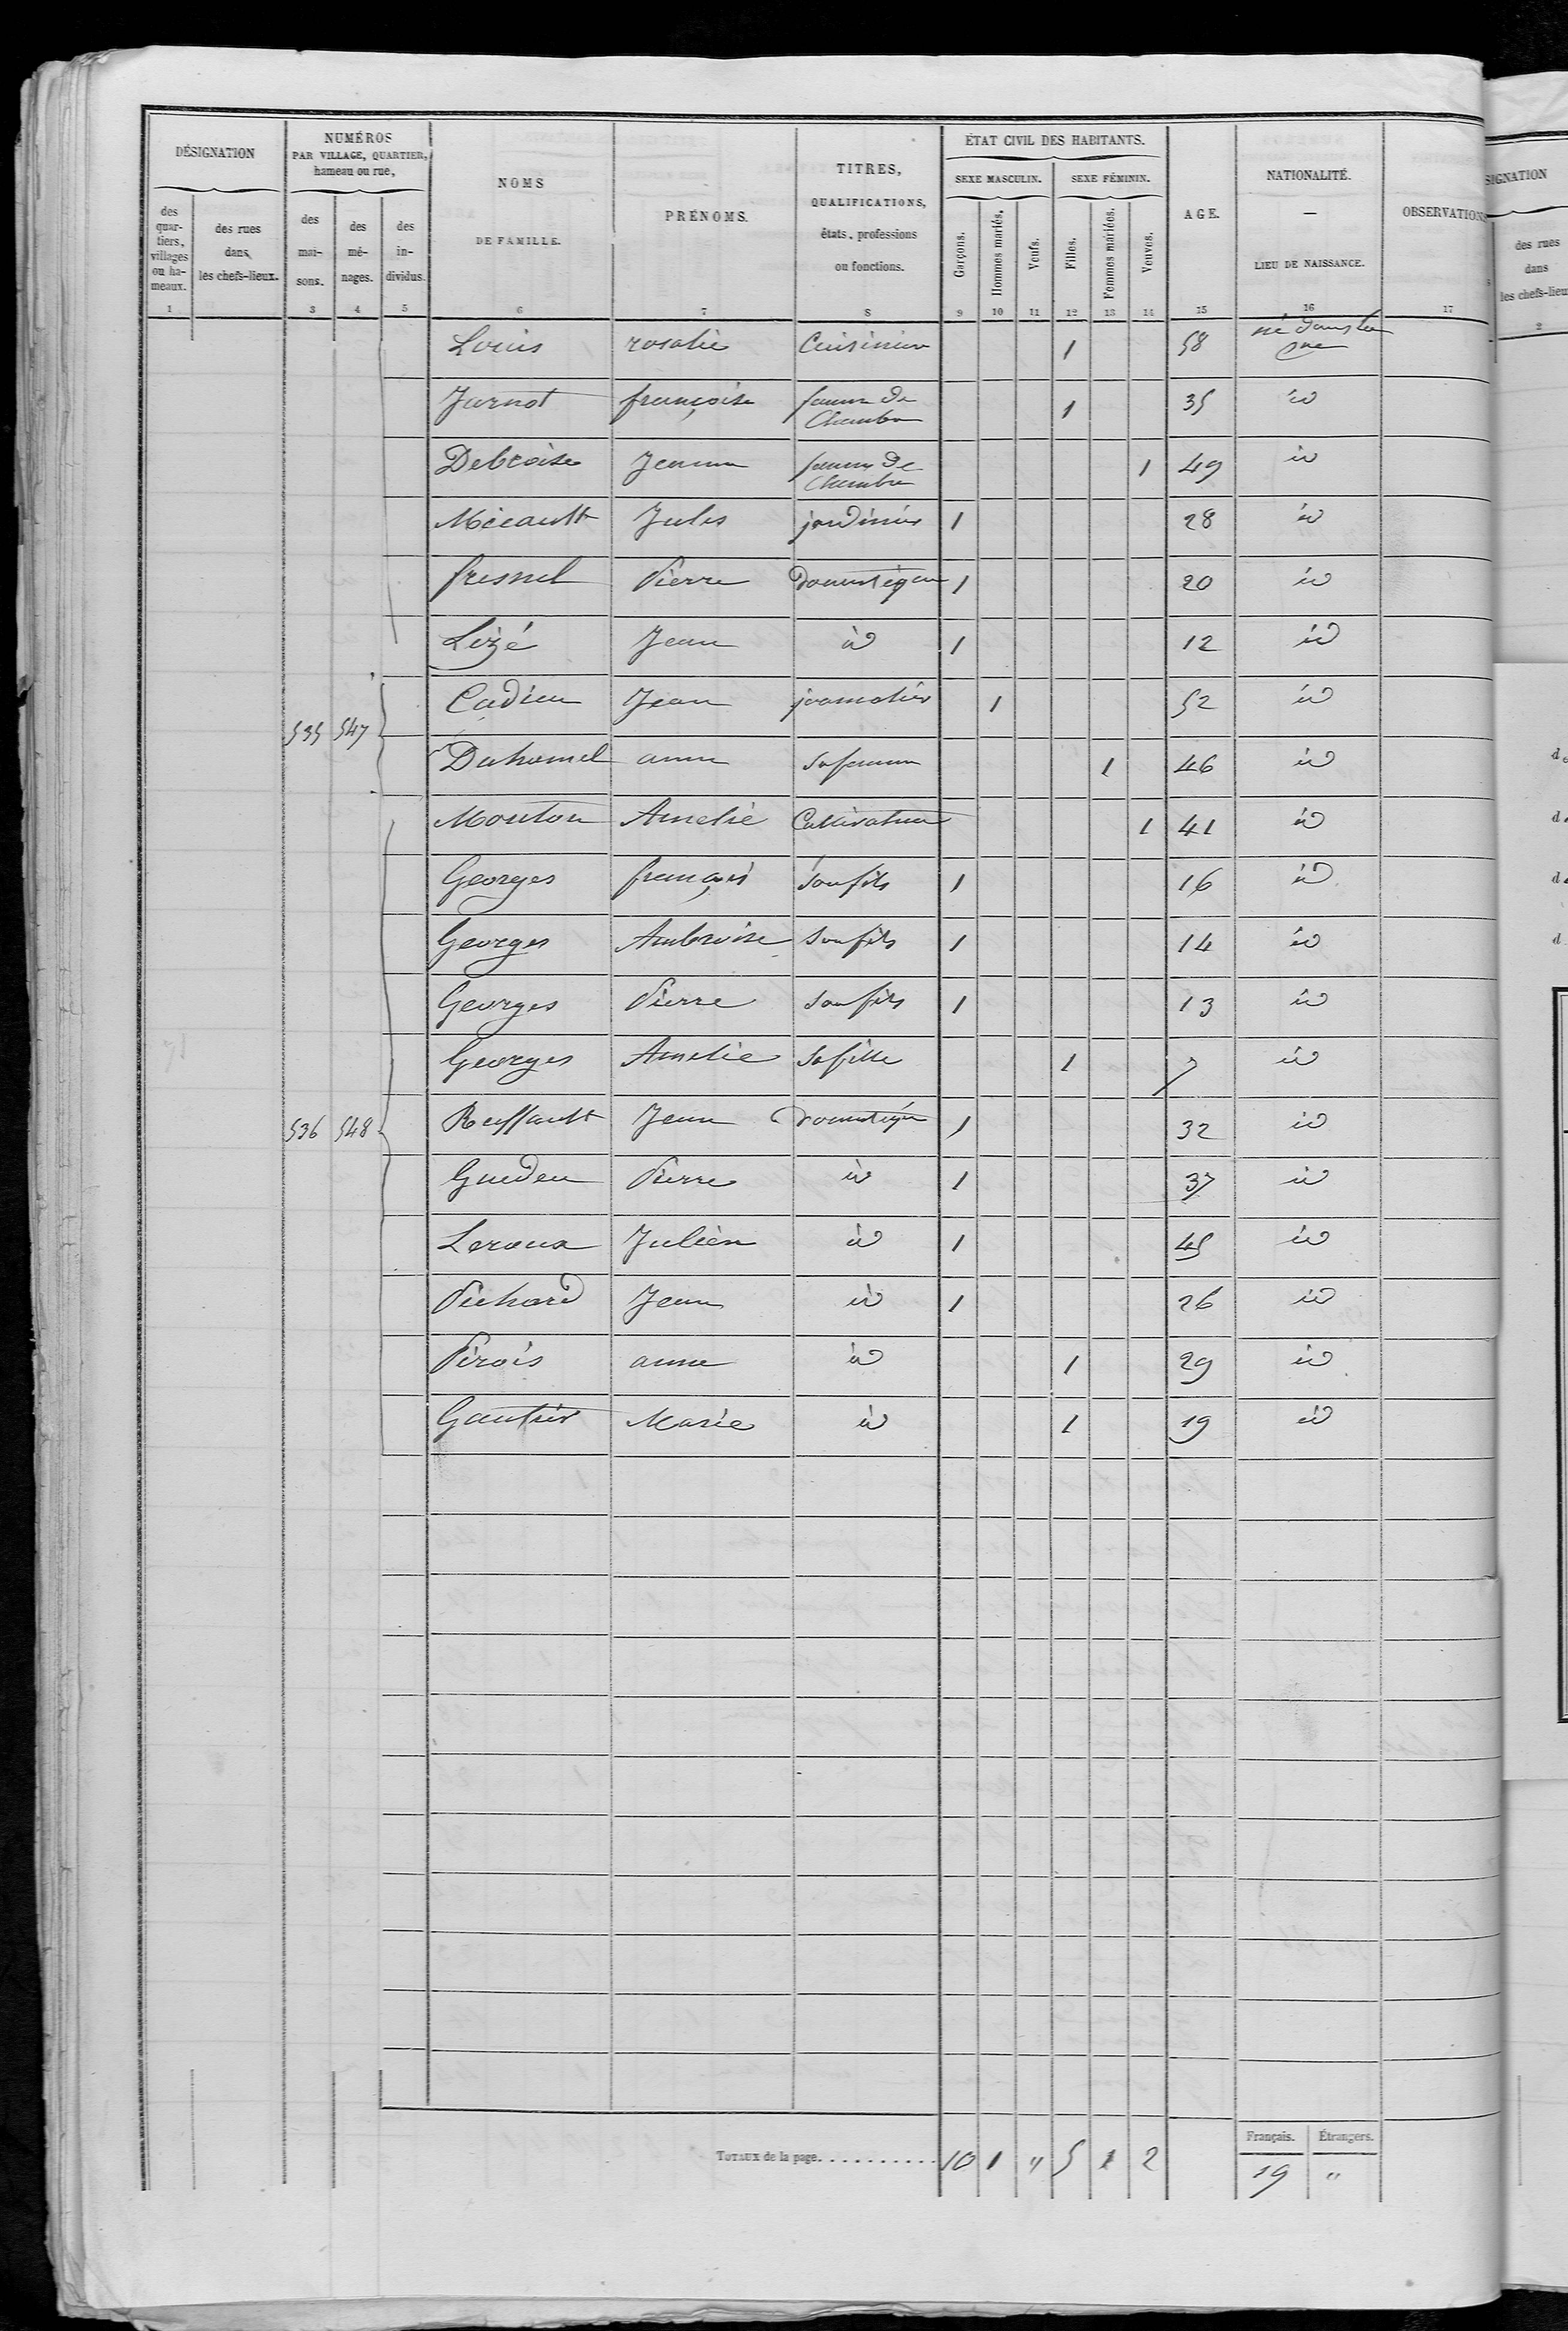 DÉSIGNATION
NUMÉROS
PAR VILLAGE, QUARTIER,
hameau ou rue,
NOMS
DE FAMILLE.
PRÉNOMS.
TITRES,
QUALIFICATIONS,
états, professions
ou fonctions.
ÉTAT CIVIL DES HABITANTS.
SEXE MASCULIN. SEXE FÉMININ.
AGE.
NATIONALITÉ.
—
LIEU DE NAISSANCE.
OBSERVATIONS
des
quar-
tiers,
villages
ou ha-
meaux.
des rues
dans
les chefs-lieux.
des
mai-
sons.
des
mé-
nages.
des
in-
dividus.
Garçons.
Hommes mariés.
Veufs.
Filles.
Femmes mariées.
Veuves.
1 3 4 5 6 7 8 9 10 11 12 13 14 15 16 17
Louis rosalie Cuisinière 1 58 né dans la
Jarnot françoise femme de 1 35 id
Chambre
Debroise Jeanne femme de 1 49 id
Chambre
Micault Jules jardinier 1 28 id
fresnel Pierre domestique 1 20 id
Lizé Jean id 1 12 id
Cadieu Jean journalier 1 52 id
535 547
Duhamel anne sa femme 1 46 id
Mouton Amelie Cultivatrice 1 41 id
Georges françois son fils 1 16 id
Georges Ambroise son fils 1 14 id
Georges Pierre son fils 1 13 id
Georges Amelie sa fille 1 7 id
536 548 Ruffault Jean domestique 1 32 id
Guedeu Pierre id 1 37 id
Leroux Julien id 1 45 id
Pichard Jean id 1 26 id
Pirois anne id 1 29 id
Gautier Marie id 1 19 id
Français. Étrangers.
TOTAUX de la page 10 1 " 5 1 2 19 "
SIGNATION
des rues
dans
les chefs-lieu
2